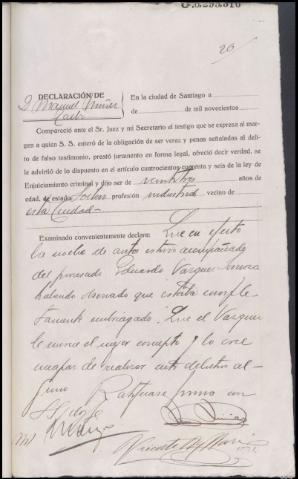 20
DECLARACIÓN DE
D. Manuel
En la ciudad de Santiago a
de de mil novecientos
Compareció ante el Sr. Juez y mi Secretario el testigo que se expresa al mar-
gen a quien S. S. enteró de la obligación de ser veraz y penas señaladas al deli-
to de falso testimonio, prestó juramento en forma legal, ofreció decir verdad, se
le advirtió de lo dispuesto en el artículo cuatrocientos cuarenta y seis de la ley de
Enjuiciamiento criminal y dijo ser de veintitres años de
edad, de estado Soltero profesión industrial vecino de
esta Ciudad
Examinado convenientemente declara: Que en efecto
la noche de autos estuvo acompañado
del procesado Eduardo Vazquez
habiendo observado que estaba comple-
tamente embriagado. Que el Vazquez
le merece el mejor concepto y lo cree
incapaz de realizar acto delictivo al-
guno. Ratificase firma con
S. S. doy fe